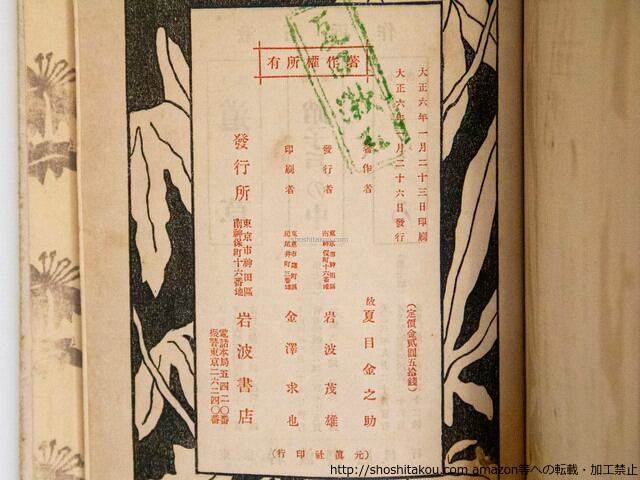 著作權所有
大正六年一月二十三日印刷
大正六年一月二十六日發行
(定價金貳圓五拾錢)
著作者 故 夏目金之助
發行者 東京市神田區南神保町十六番地 岩波茂雄
印刷者 金澤求也
發行所 東京市神田區南神保町十六番地 岩波書店
電話本局五四二〇番
振替東京二六二四〇番
(元眞社印行)
shoshitakou.com
http://shoshitakou.com amazon等への転載・加工禁止